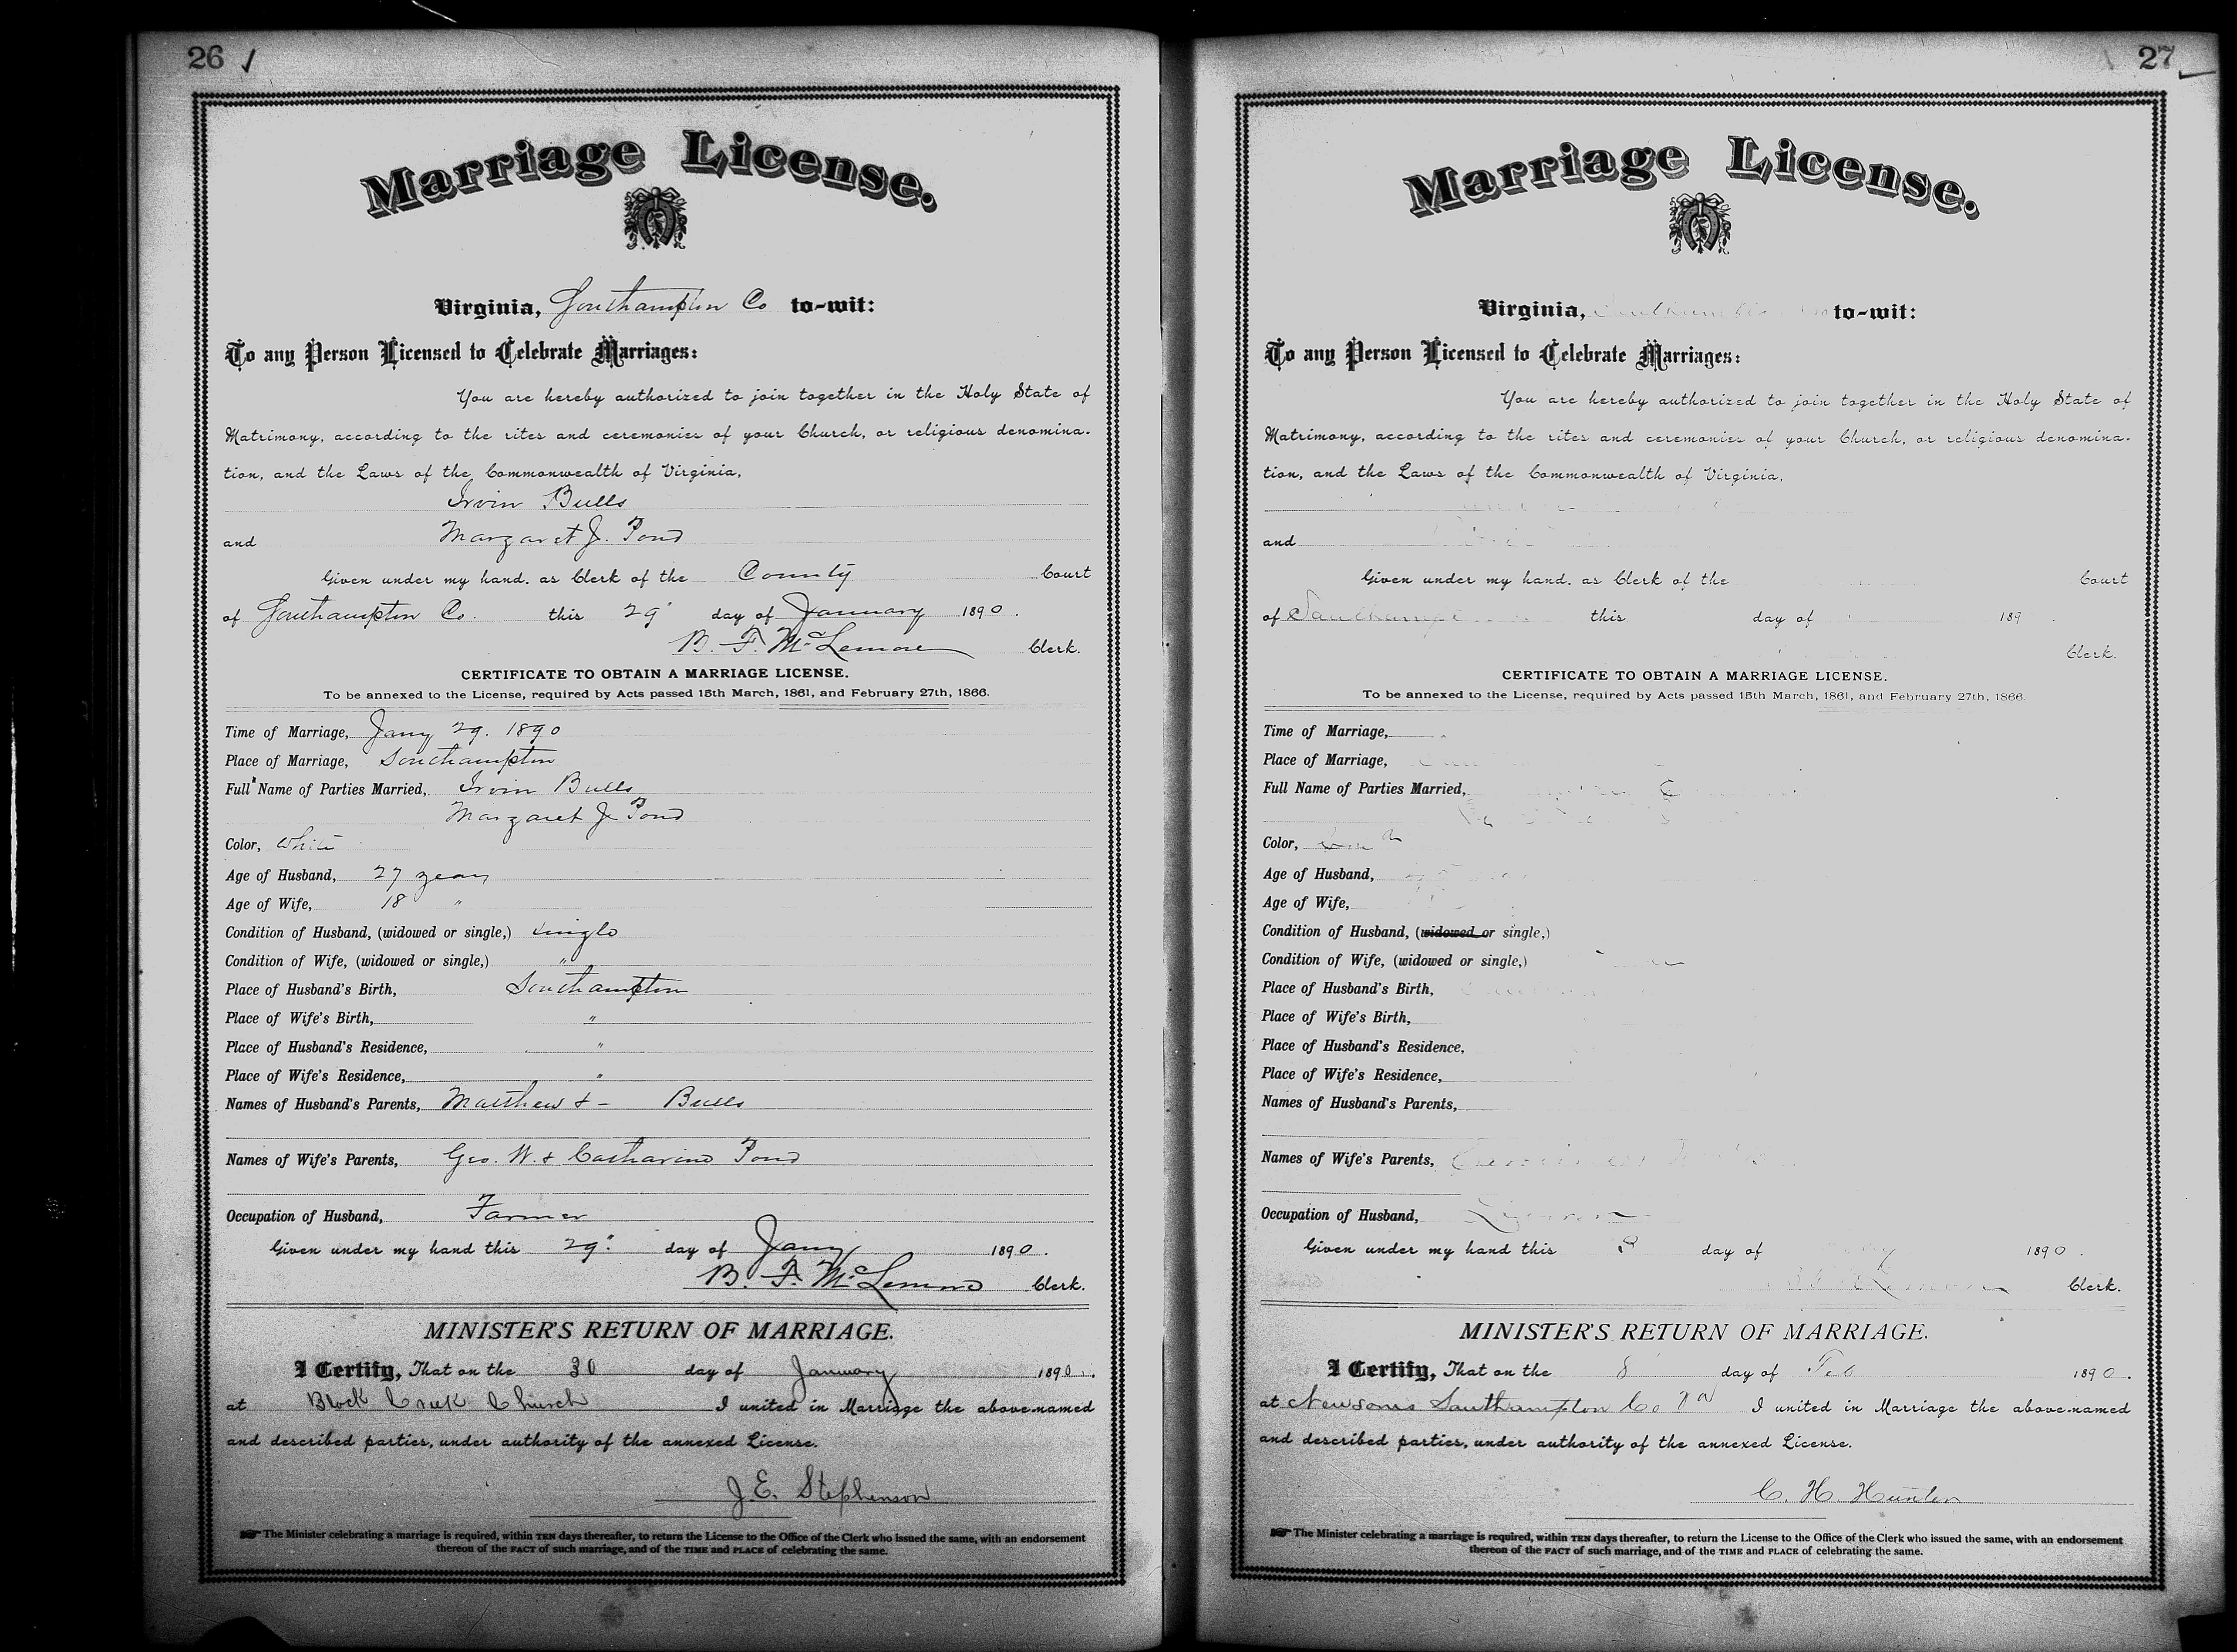 26
Marriage License.
Virginia, Southampton Co to-wit:
To any Person Licensed to Celebrate Marriages:
You are hereby authorized to join together in the Holy State of
Matrimony, according to the rites and ceremonies of your Church, or religious denomina-
tion, and the Laws of the Commonwealth of Virginia,
Irvin Bulls
and Margaret J. Pond
Given under my hand, as Clerk of the County Court
of Southampton Co. this 29" day of January 1890.
B. F. McLemore Clerk.
CERTIFICATE TO OBTAIN A MARRIAGE LICENSE.
To be annexed to the License, required by Acts passed 15th March, 1861, and February 27th, 1866.
Time of Marriage, Jany 29. 1890
Place of Marriage, Southampton
Full Name of Parties Married, Irvin Bulls
Margaret J Pond
Color, White
Age of Husband, 27 years
Age of Wife, 18 "
Condition of Husband, (widowed or single,) single
Condition of Wife, (widowed or single,) "
Place of Husband's Birth, Southampton
Place of Wife's Birth, "
Place of Husband's Residence, "
Place of Wife's Residence, "
Names of Husband's Parents, Matthew & - Bulls
Names of Wife's Parents, Geo. W. & Catharine Pond
Occupation of Husband, Farmer
Given under my hand this 29" day of Jany 1890.
B. F. McLemore Clerk.
MINISTER'S RETURN OF MARRIAGE.
I Certify, That on the 30 day of January 1890.
at Black Creek Church I united in Marriage the above-named
and described parties, under authority of the annexed License.
J. E. Stephenson
The Minister celebrating a marriage is required, within TEN days thereafter, to return the License to the Office of the Clerk who issued the same, with an endorsement
thereon of the FACT of such marriage, and of the TIME and PLACE of celebrating the same.
27
Marriage License.
Virginia, to-wit:
To any Person Licensed to Celebrate Marriages:
You are hereby authorized to join together in the Holy State of
Matrimony, according to the rites and ceremonies of your Church, or religious denomina-
tion, and the Laws of the Commonwealth of Virginia,
and
Given under my hand, as Clerk of the Court
of Southampton this day of 189
Clerk.
CERTIFICATE TO OBTAIN A MARRIAGE LICENSE.
To be annexed to the License, required by Acts passed 15th March, 1861, and February 27th, 1866.
Time of Marriage,
Place of Marriage,
Full Name of Parties Married,
Color,
Age of Husband,
Age of Wife,
Condition of Husband, (widowed or single,)
Condition of Wife, (widowed or single,)
Place of Husband's Birth,
Place of Wife's Birth,
Place of Husband's Residence,
Place of Wife's Residence,
Names of Husband's Parents,
Names of Wife's Parents,
Occupation of Husband,
Given under my hand this 8 day of 1890.
Clerk.
MINISTER'S RETURN OF MARRIAGE.
I Certify, That on the 8 day of Feb 1890.
at Newsoms Southampton Co Va I united in Marriage the above-named
and described parties, under authority of the annexed License.
C. H. Hunter
The Minister celebrating a marriage is required, within TEN days thereafter, to return the License to the Office of the Clerk who issued the same, with an endorsement
thereon of the FACT of such marriage, and of the TIME and PLACE of celebrating the same.